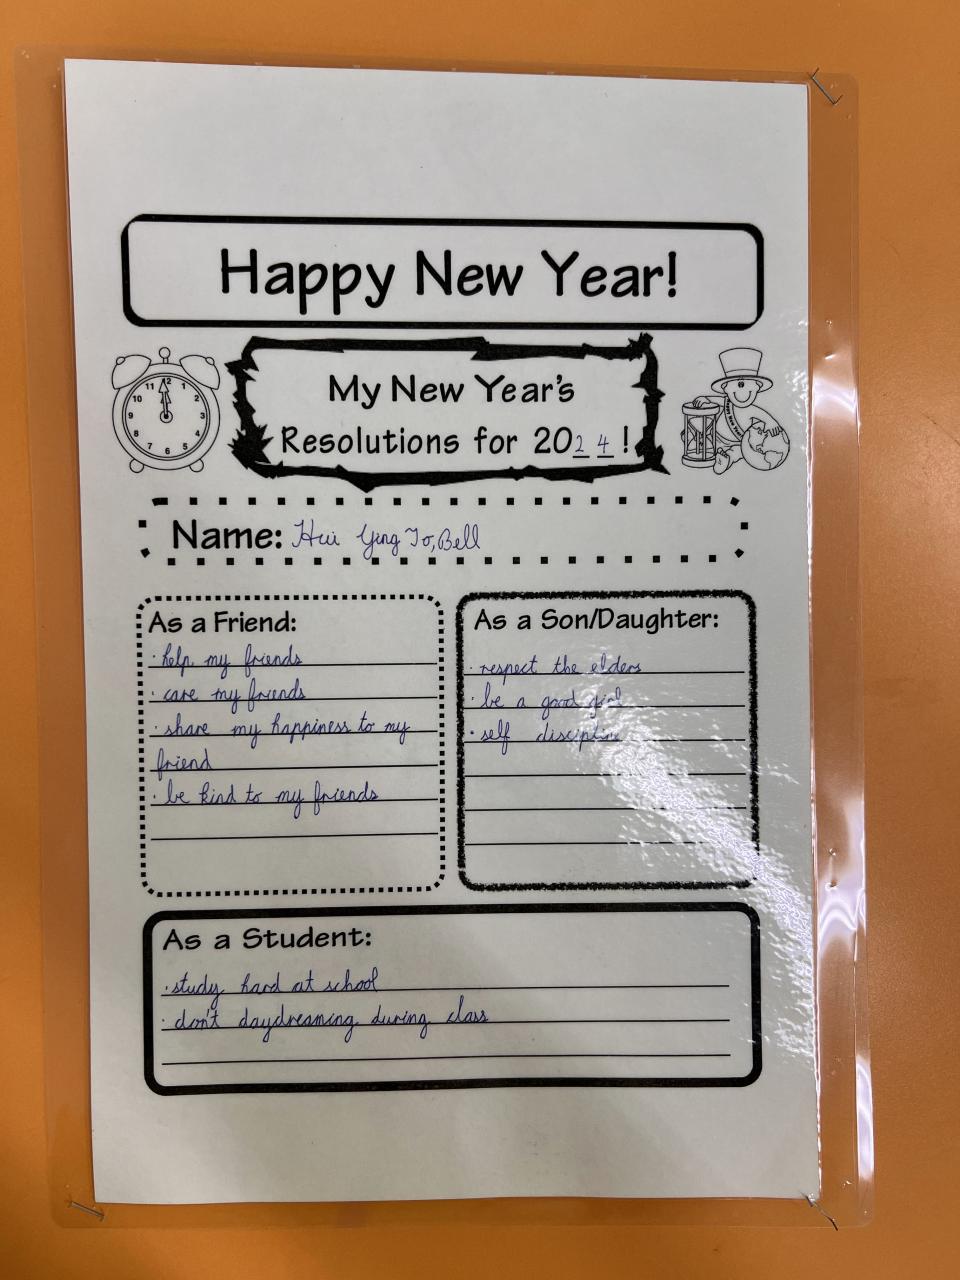 Happy New Year!
My New Year's
Resolutions for 2024!
Name: Hui Ying To, Bell
As a Friend:
· help my friends
· care my friends
· share my happiness to my
friend
· be kind to my friends
As a Son/Daughter:
· respect the elders
· be a good girl
· self discipline
As a Student:
· study hard at school
· don't daydreaming during class